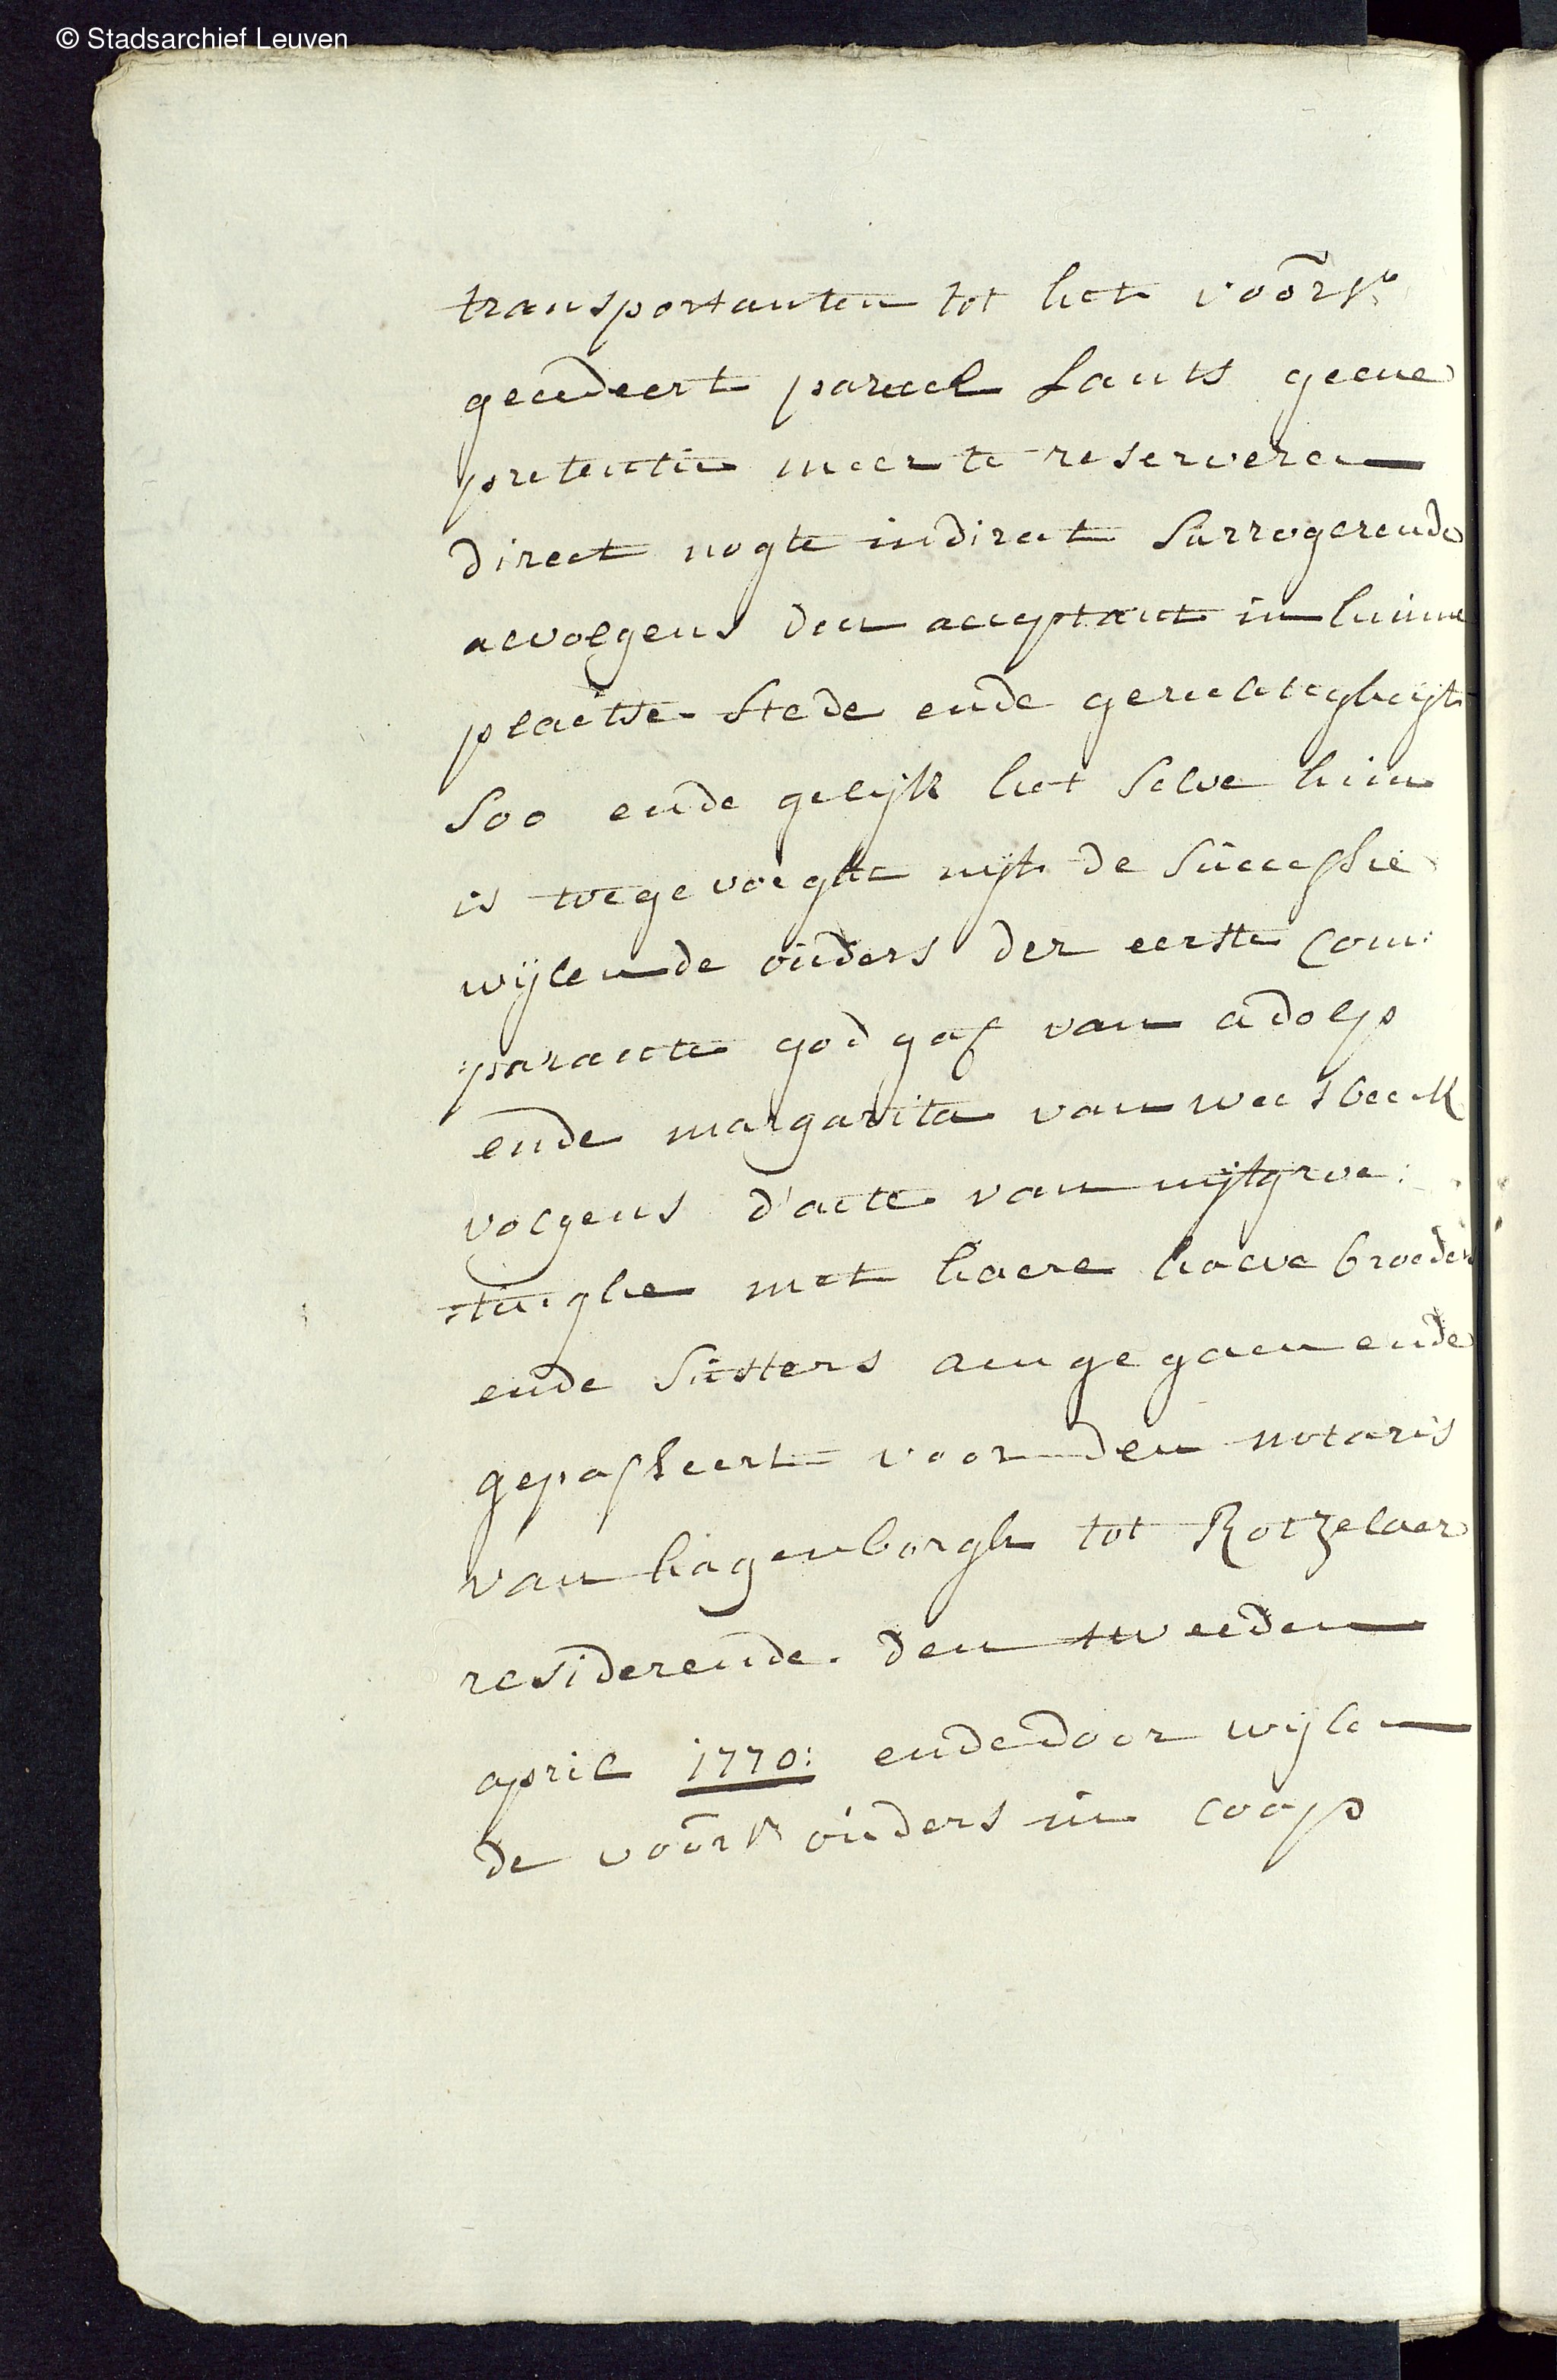 © Stadsarchief Leuven
transportanten tot het voōrs.
gecedeert parceel Lants geene
pretentie meer te reserveren
direct nogte indirect Surrogerende
acvolgens den acceptant in hunne
plaetse Stede ende gerechtigheijt
Soo ende gelijk het Selve hun
is toegevoeght uijt de Successie
wijlen de oúders der eerste Com:
:parante godgaf van adolp
ende margarita van weesbeeck
volgens d'acte van uijtgroe:
:tinghe met haere haeve broeders
ende Süsters aengegaen ende
gepasseert voor den notaris
van hagenborgh tot Rotzelaer
residerende. den tweeden
april 1770: ende door wijlen
de voōrs oúders in coop